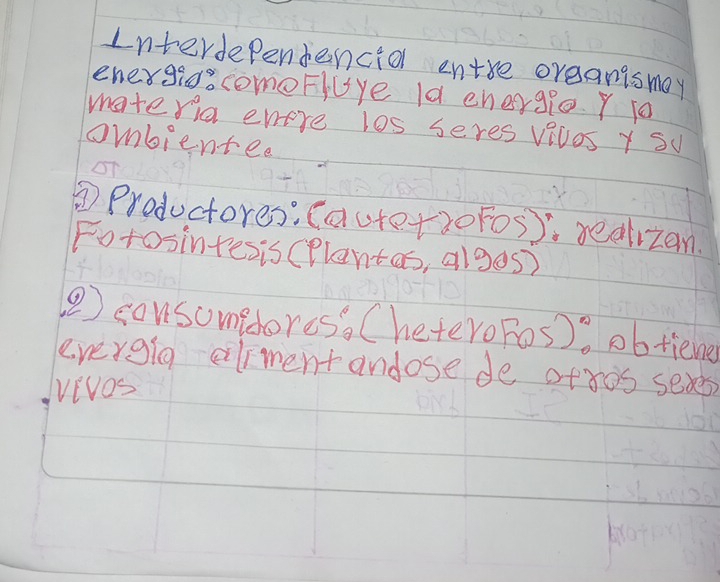 Interdependencia entre organismo y
energia: como Fluye la energia y la
materia entre los seres vivos y su
ambiente.
1) Productores: (autotrofos): realizan.
Fotosintesis (Plantas, algas)
2) consumidores: (heterofos): obtienen
energia alimentandose de otros seres
vivos